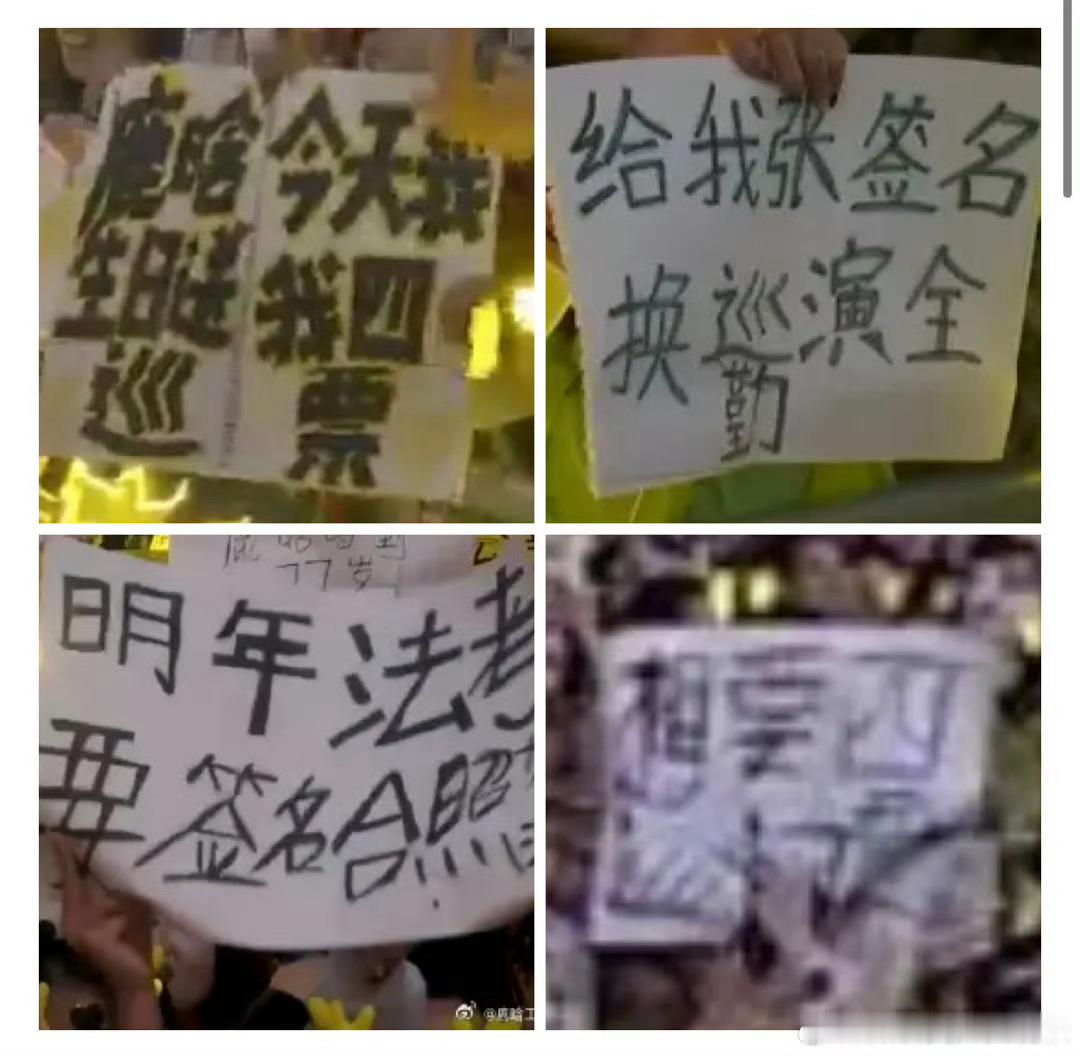 鹿晗今天我
生日送我四
巡票
给我张签名
换巡演全
勤
77岁
明年法考
要签名合照
想要四
巡
@鹿晗工